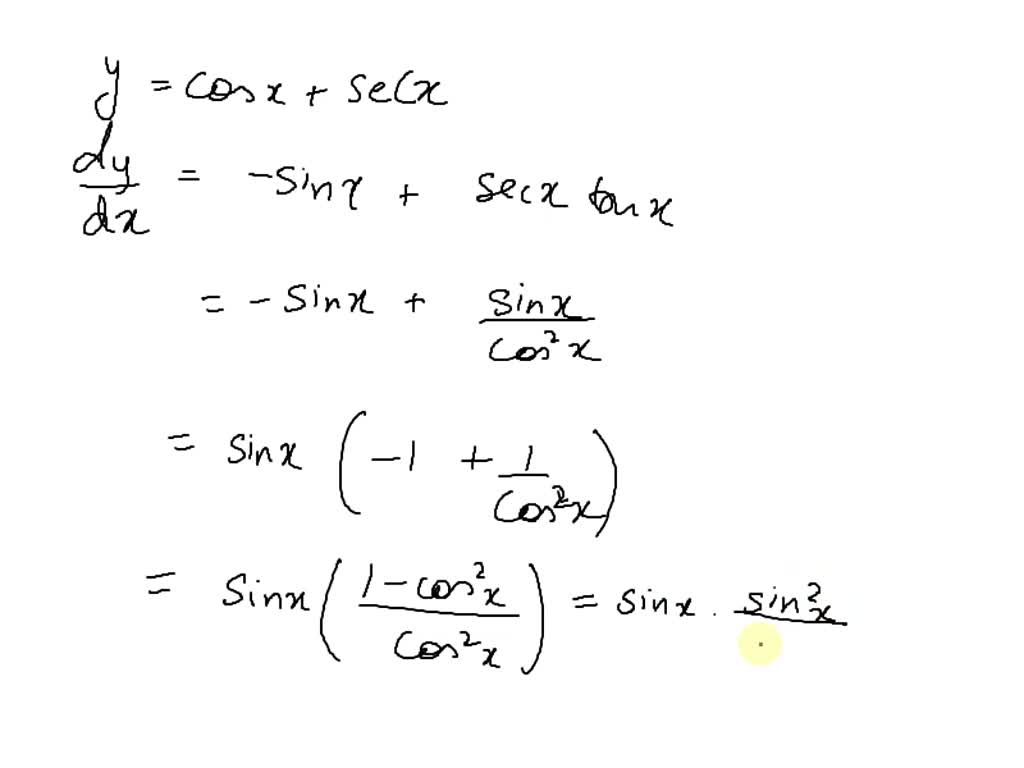 y = cosx + secx
dy/dx = -sinx + secx tanx
= -sinx + sinx/cos²x
= sinx (-1 + 1/cos²x)
= sinx ((1-cos²x)/cos²x) = sinx . sin²x/